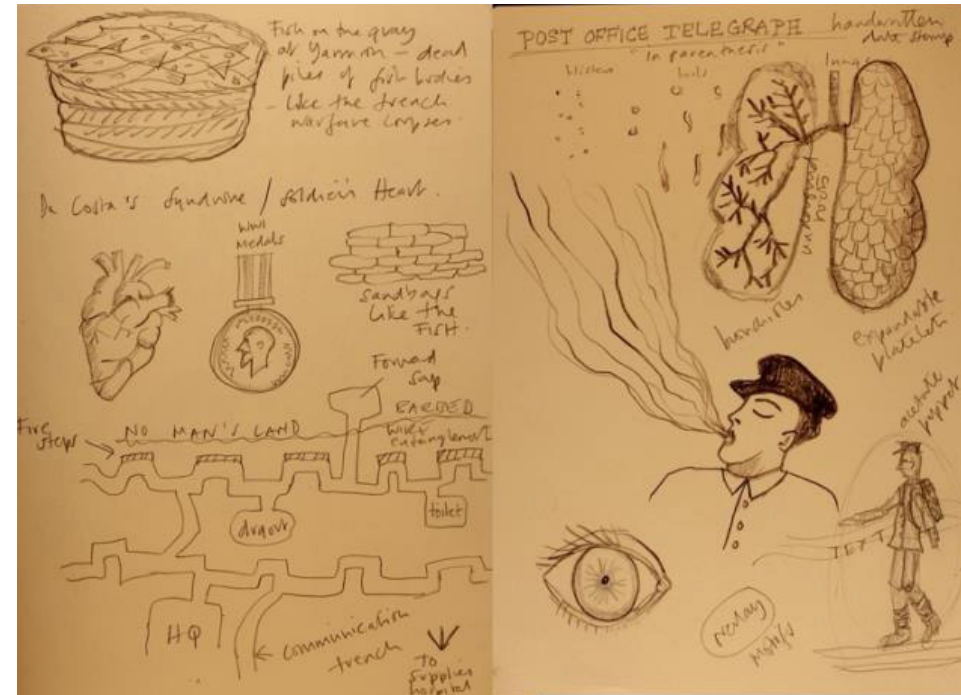 Fish on the quay
at Yarmouth - dead
piles of fish bodies
- Like the trench
warfare corpses.
Da Costa's Syndrome / Soldier's Heart.
WWI
Medals
sandbags
like the
FISH.
Forward
Sap
Fire
steps
NO MAN'S LAND
BARBED
wire
entanglement
dugout
toilet
HQ
communication
trench
TO
supplies
hospital
POST OFFICE TELEGRAPH
handwritten
date stamp
"in parenthesis"
blisters
lungs
bronchioles
expandable
platelets.
acetate
puppet
TEXT
overlay
motifs